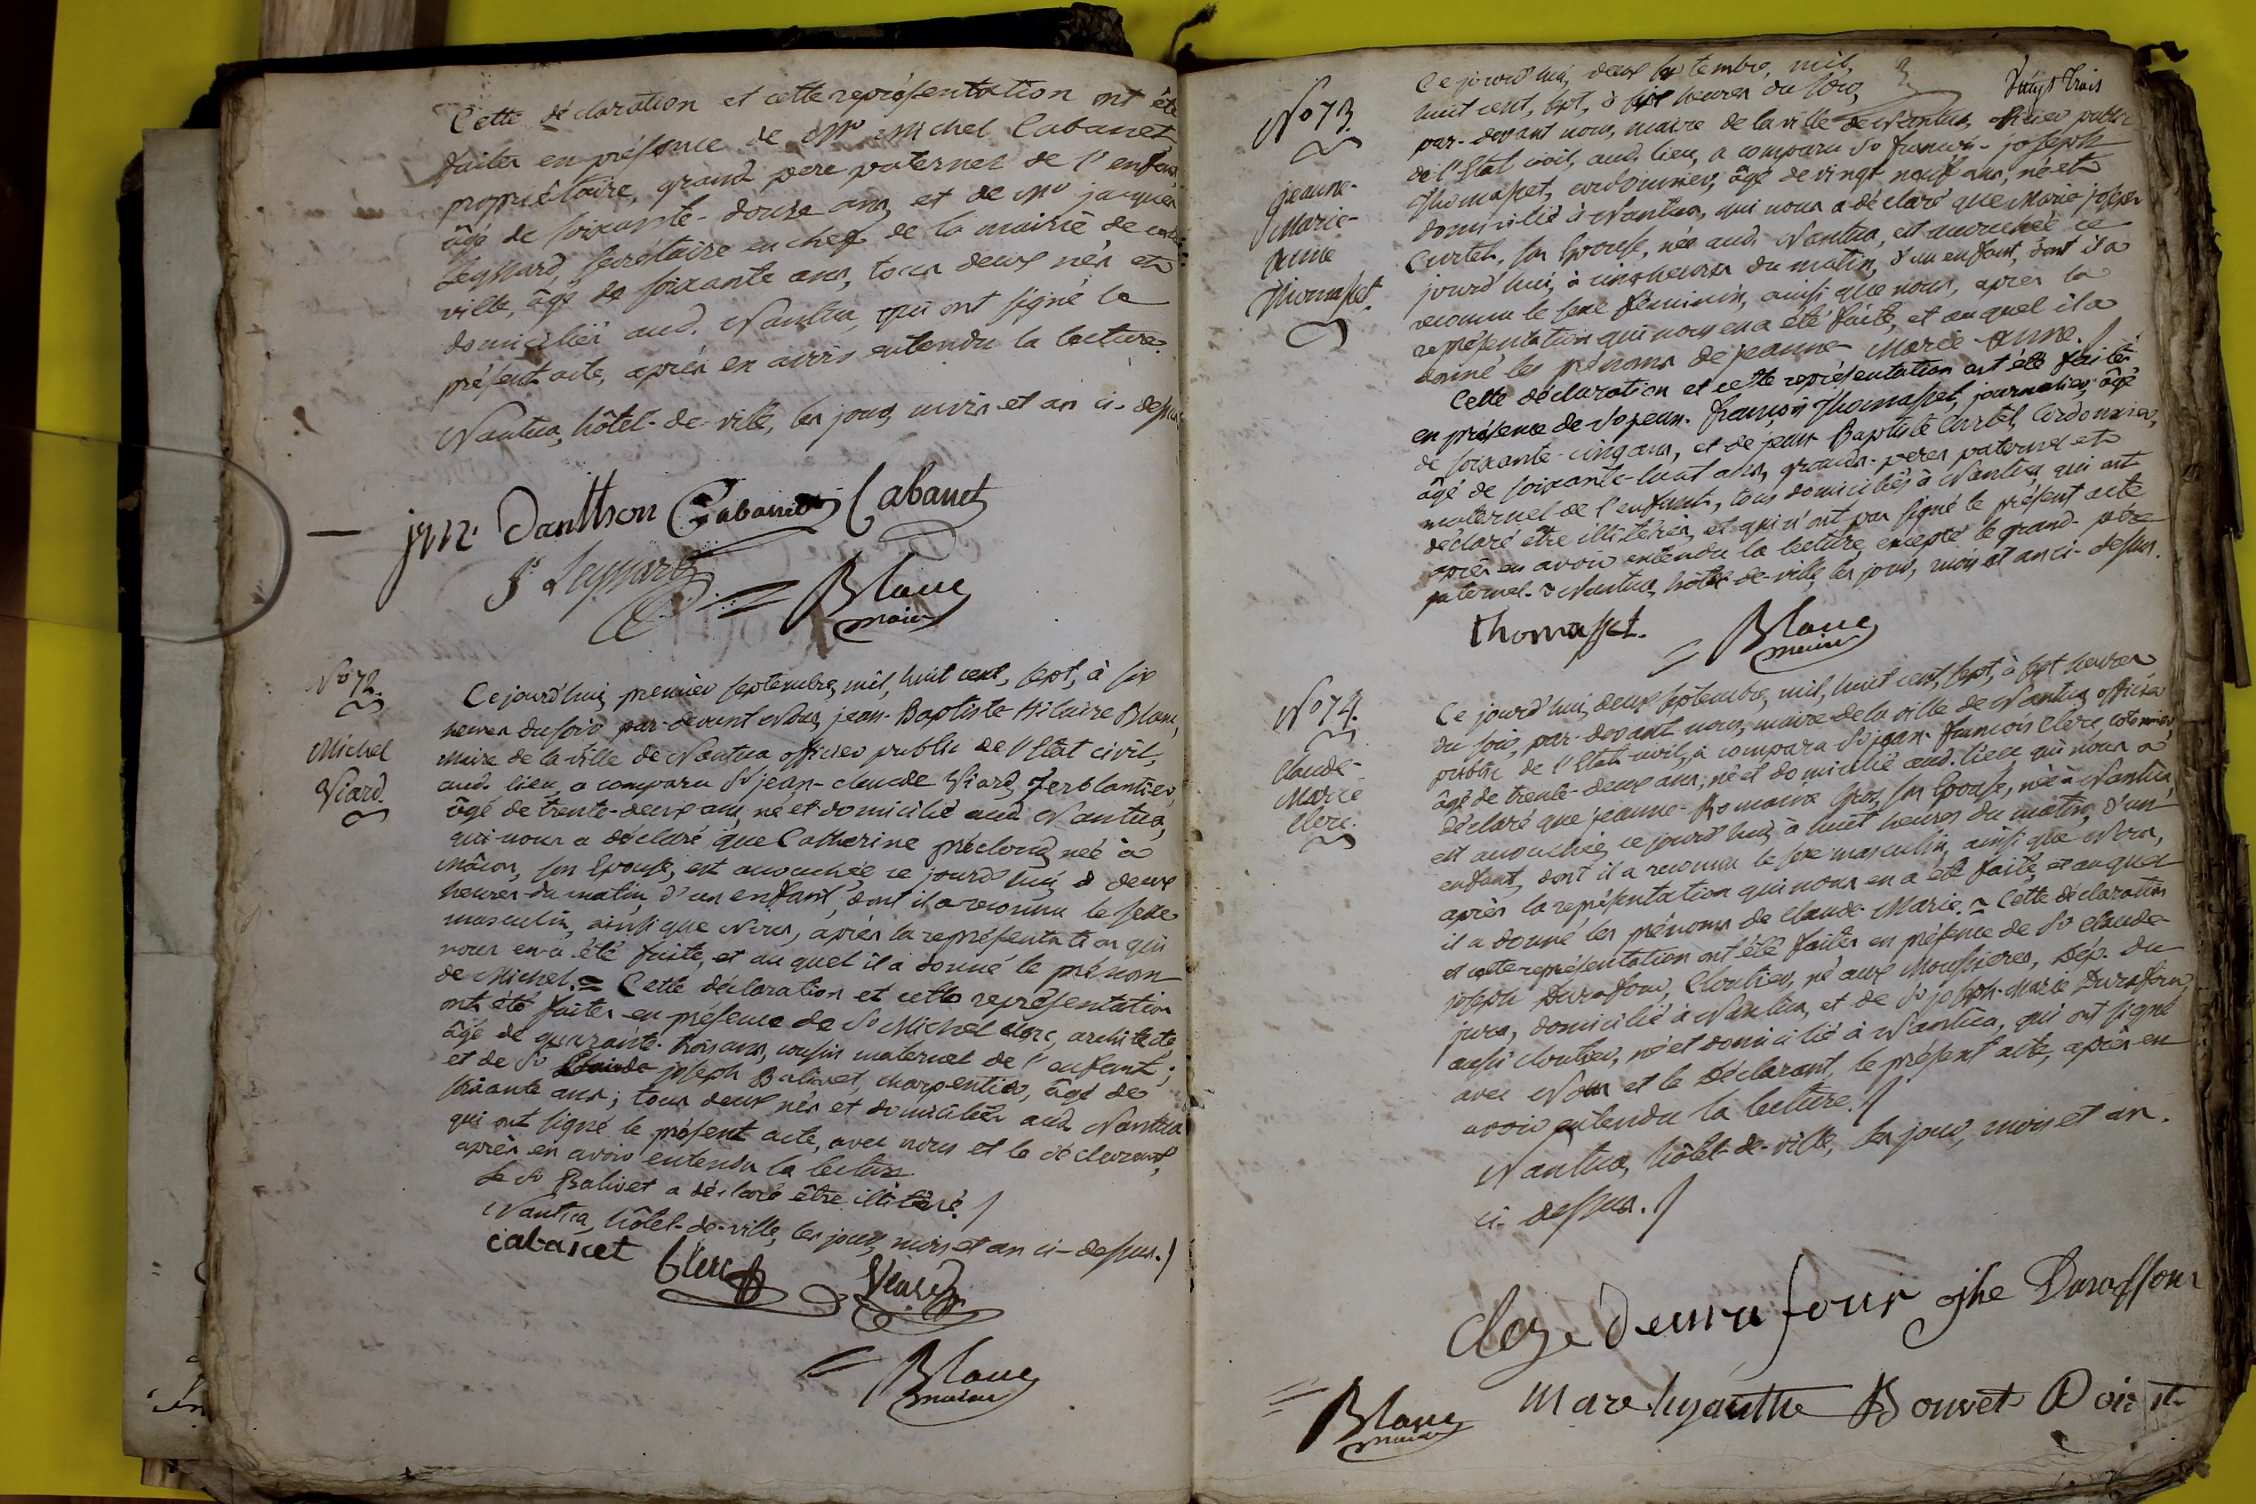 Cette déclaration et cette représentation ont été
faites en présence de Mr Michel Cabanet,
propriétaire, grand pere paternel de l'enfant
âgé de soixante-douze ans, et de Mr jacques
Leyssard, secrétaire en chef de la mairie de cette
ville, âgé de soixante ans, tous deux nés et
domiciliés aud. Nantua, qui ont signé le
présent acte, après en avoir entendu la lecture.
Nantua, hôtel-de-ville, les jour, mois et an ci-dessus
Danthon Cabanet Cabanet
Js Leyssard
Blanc
maire
No 72.
Michel
Viard.
Cejourd'hui, premier septembre, mil, huit cent, sept, à six
heures du soir, par-devant Nous, jean-Baptiste Hilaire Blanc,
maire de la ville de Nantua officier public de l'Etat civil,
aud. lieu, a comparu Sr jean-claude Viard, ferblantier,
âgé de trente-deux ans, né et domicilié aud. Nantua,
qui nous a déclaré que Catherine préclouz, née à
Mâcon, son Epouse, est accouchée ce jourd'hui, à deux
heures du matin, d'un enfant, dont il a reconnu le sexe
masculin, ainsi que Nous, après la représentation qui
nous en a été faite, et au quel il a donné le prénom
de Michel. = Cette déclaration et cette représentation
ont été faites en présence de Sr Michel Clerc, architecte
âgé de quarante-trois ans, cousin maternel de l'enfant;
et de Sr joseph Balivet, charpentier, âgé de
soixante ans; tous deux nés et domiciliés aud. Nantua
qui ont signé le présent acte, avec nous et le déclarant,
après en avoir entendu la lecture.
Le Sr Balivet a déclaré être illitéré./
Nantua, hôtel-de-ville, les jour, mois et an ci-dessus./
cabanet Clerc Viard
Blanc
maire
Vingt trois
No 73.
jeanne-
Marie-
Anne
Thomasset.
Ce jourd'hui, deux septembre, mil,
huit cent, sept, à sept heures du soir,
par-devant nous, maire de la ville de Nantua, officier public
de l'Etat civil, aud. lieu, a comparu Sr francois-joseph
Thomasset, cordonnier, âgé de vingt neuf ans, né et
domicilié à Nantua, qui nous a déclaré que Marie-josephe
Curtet, son Epouse, née aud. Nantua, est accouchée ce
jourd'hui, à cinq heures du matin, d'un enfant, dont il a
reconnu le sexe féminin, ainsi que nous, après la
représentation qui nous en a été faite, et au quel il a
donné les prénoms de jeanne-Marie-Anne./
Cette déclaration et cette représentation ont été faites
en présence de Sr jean-françois Thomasset, journalier, âgé
de soixante-cinq ans, et de jean Baptiste Curtet, Cordonnier,
âgé de soixante-huit ans, grands-peres paternel et
maternel de l'enfant, tous domiciliés à Nantua, qui ont
déclaré être illitérés, et qui n'ont pas signé le présent acte
après en avoir entendu la lecture, excepté le grand-père
paternel. à Nantua, hôtel-de-ville, les jour, mois et an ci-dessus.
thomasset.
Blanc
maire
No 74.
Claude-
Marie
Clerc.
Ce jourd'hui, deux septembre, mil, huit cent, sept, à sept heures
du soir, par-devant nous, maire de la ville de Nantua, officier
public de l'Etat-civil, a comparu Sr jean-francois Clerc, cotonnier,
âgé de trente-deux ans, né et domicilié aud. lieu, qui nous a
déclaré que jeanne-Romaine Gros, son Epouse, née à Nantua,
est accouchée, ce jourd'hui, à huit heures du matin, d'un
enfant, dont il a reconnu le sexe masculin, ainsi que Nous,
après la représentation qui nous en a été faite, et au quel
il a donné les prénoms de Claude-Marie. = Cette déclaration
et cette représentation ont été faites en présence de Sr Claude-
joseph Durafour, Cloutier, né aux Moussieres, Dép. du
jura, domicilié à Nantua, et de Sr joseph-Marie Durafour,
aussi cloutier, né et domicilié à Nantua, qui ont signé
avec Nous et le Déclarant, le présent acte, après en
avoir entendu la lecture./
Nantua, hôtel-de-ville, les jour, mois et an
ci-dessus./
durafour jhe Duraffour
Marc hyacinthe Bouvet
Blanc
maire